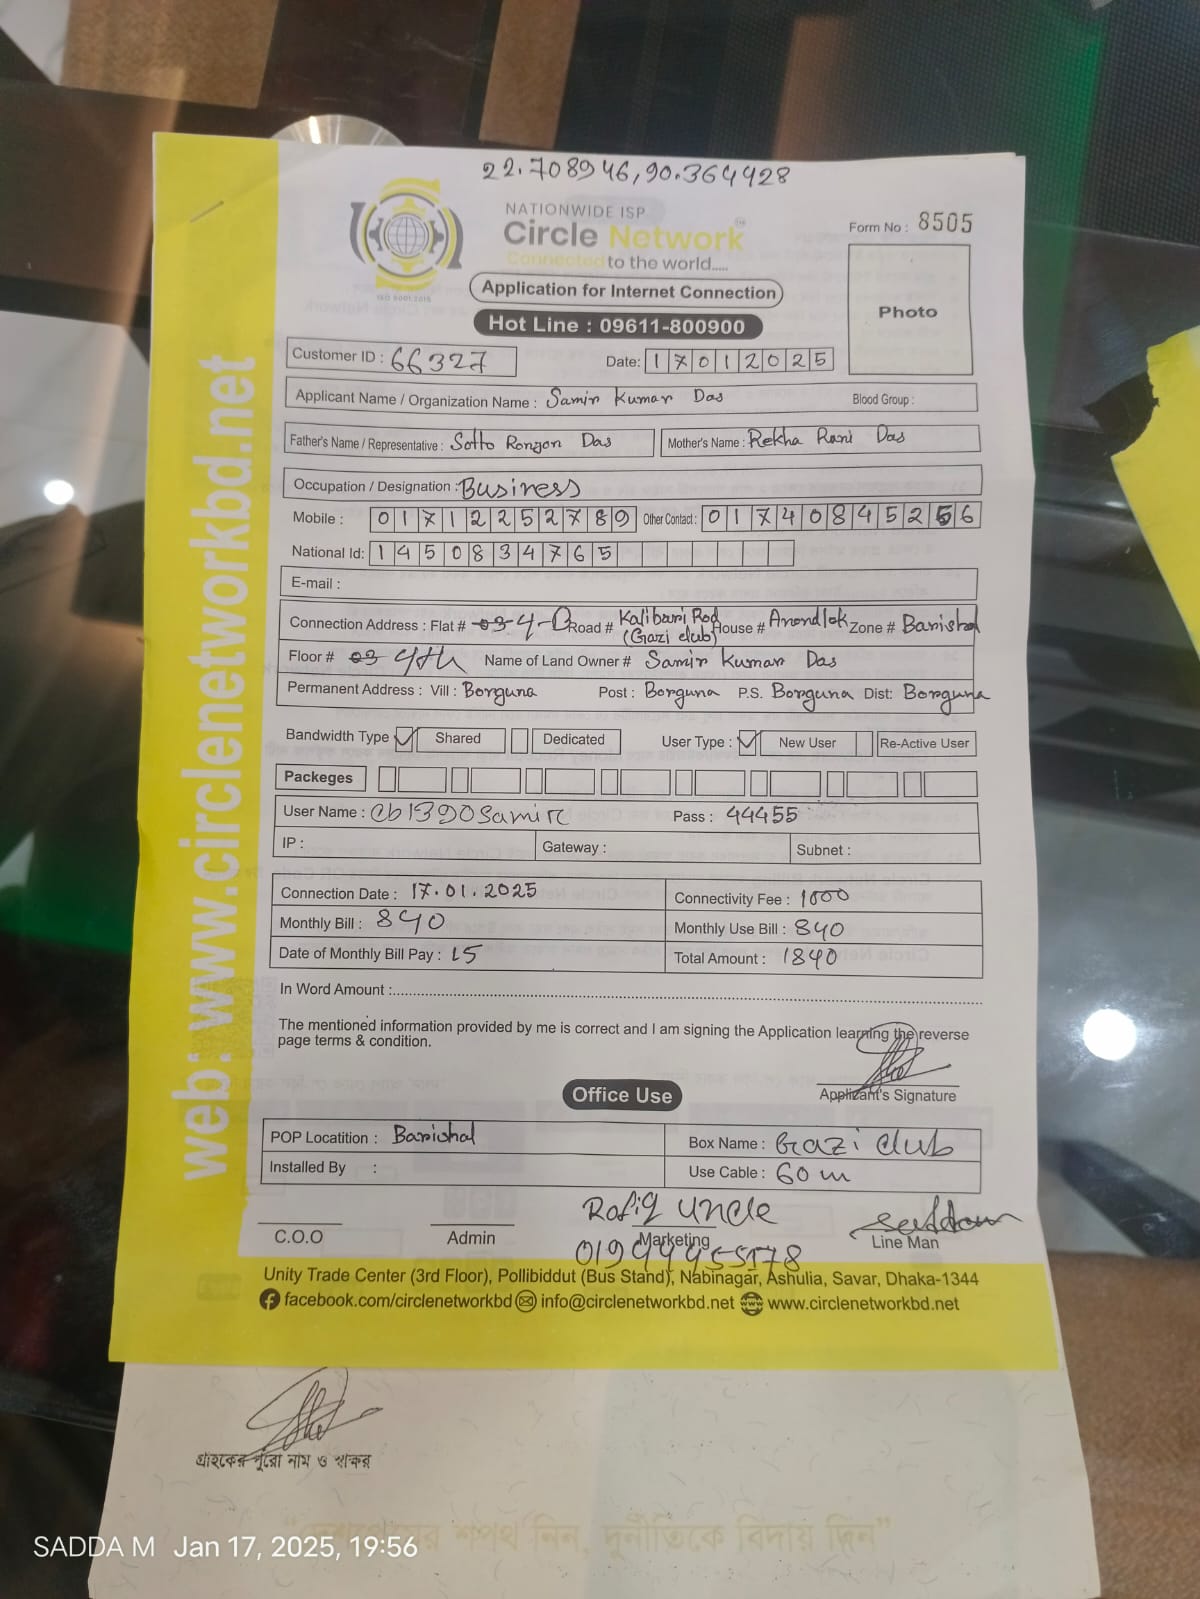 22.708946,90.364428
NATIONWIDE ISP
Circle Network
Connected to the world.....
ISO 9001:2015
Form No : 8505
Application for Internet Connection
Photo
Hot Line : 09611-800900
Customer ID : 66327 Date: 17012025
Applicant Name / Organization Name : Samir Kumar Das Blood Group :
Father's Name / Representative : Sotto Ronjon Das Mother's Name : Rekha Rani Das
Occupation / Designation : Business
Mobile : 01712252789 Other Contact : 01740845256
National Id: 1450834765
E-mail :
Connection Address : Flat # 4-D Road # Kalibari Rod (Gazi club) House # Anondlok Zone # Barishal
Floor # 03 4th Name of Land Owner # Samir Kumar Das
Permanent Address : Vill : Borguna Post : Borguna P.S. Borguna Dist: Borguna
Bandwidth Type Shared Dedicated User Type : New User Re-Active User
Packeges
User Name : Cb1390Samir Pass : 44455
IP : Gateway : Subnet :
Connection Date : 17.01.2025 Connectivity Fee : 1000
Monthly Bill : 840 Monthly Use Bill : 840
Date of Monthly Bill Pay : 15 Total Amount : 1840
In Word Amount :
The mentioned information provided by me is correct and I am signing the Application learning the reverse
page terms & condition.
Applicant's Signature
Office Use
POP Locatition : Barishal Box Name : Gazi Club
Installed By : Use Cable : 60 m
Rafiq Uncle Saddam
C.O.O Admin Marketing Line Man
Unity Trade Center (3rd Floor), Pollibiddut (Bus Stand), Nabinagar, Ashulia, Savar, Dhaka-1344
facebook.com/circlenetworkbd info@circlenetworkbd.net www.circlenetworkbd.net
web: www.circlenetworkbd.net
গ্রাহকের পুরো নাম ও স্বাক্ষর
শপথ নিন, দুর্নীতিকে বিদায় দিন"
SADDA M Jan 17, 2025, 19:56